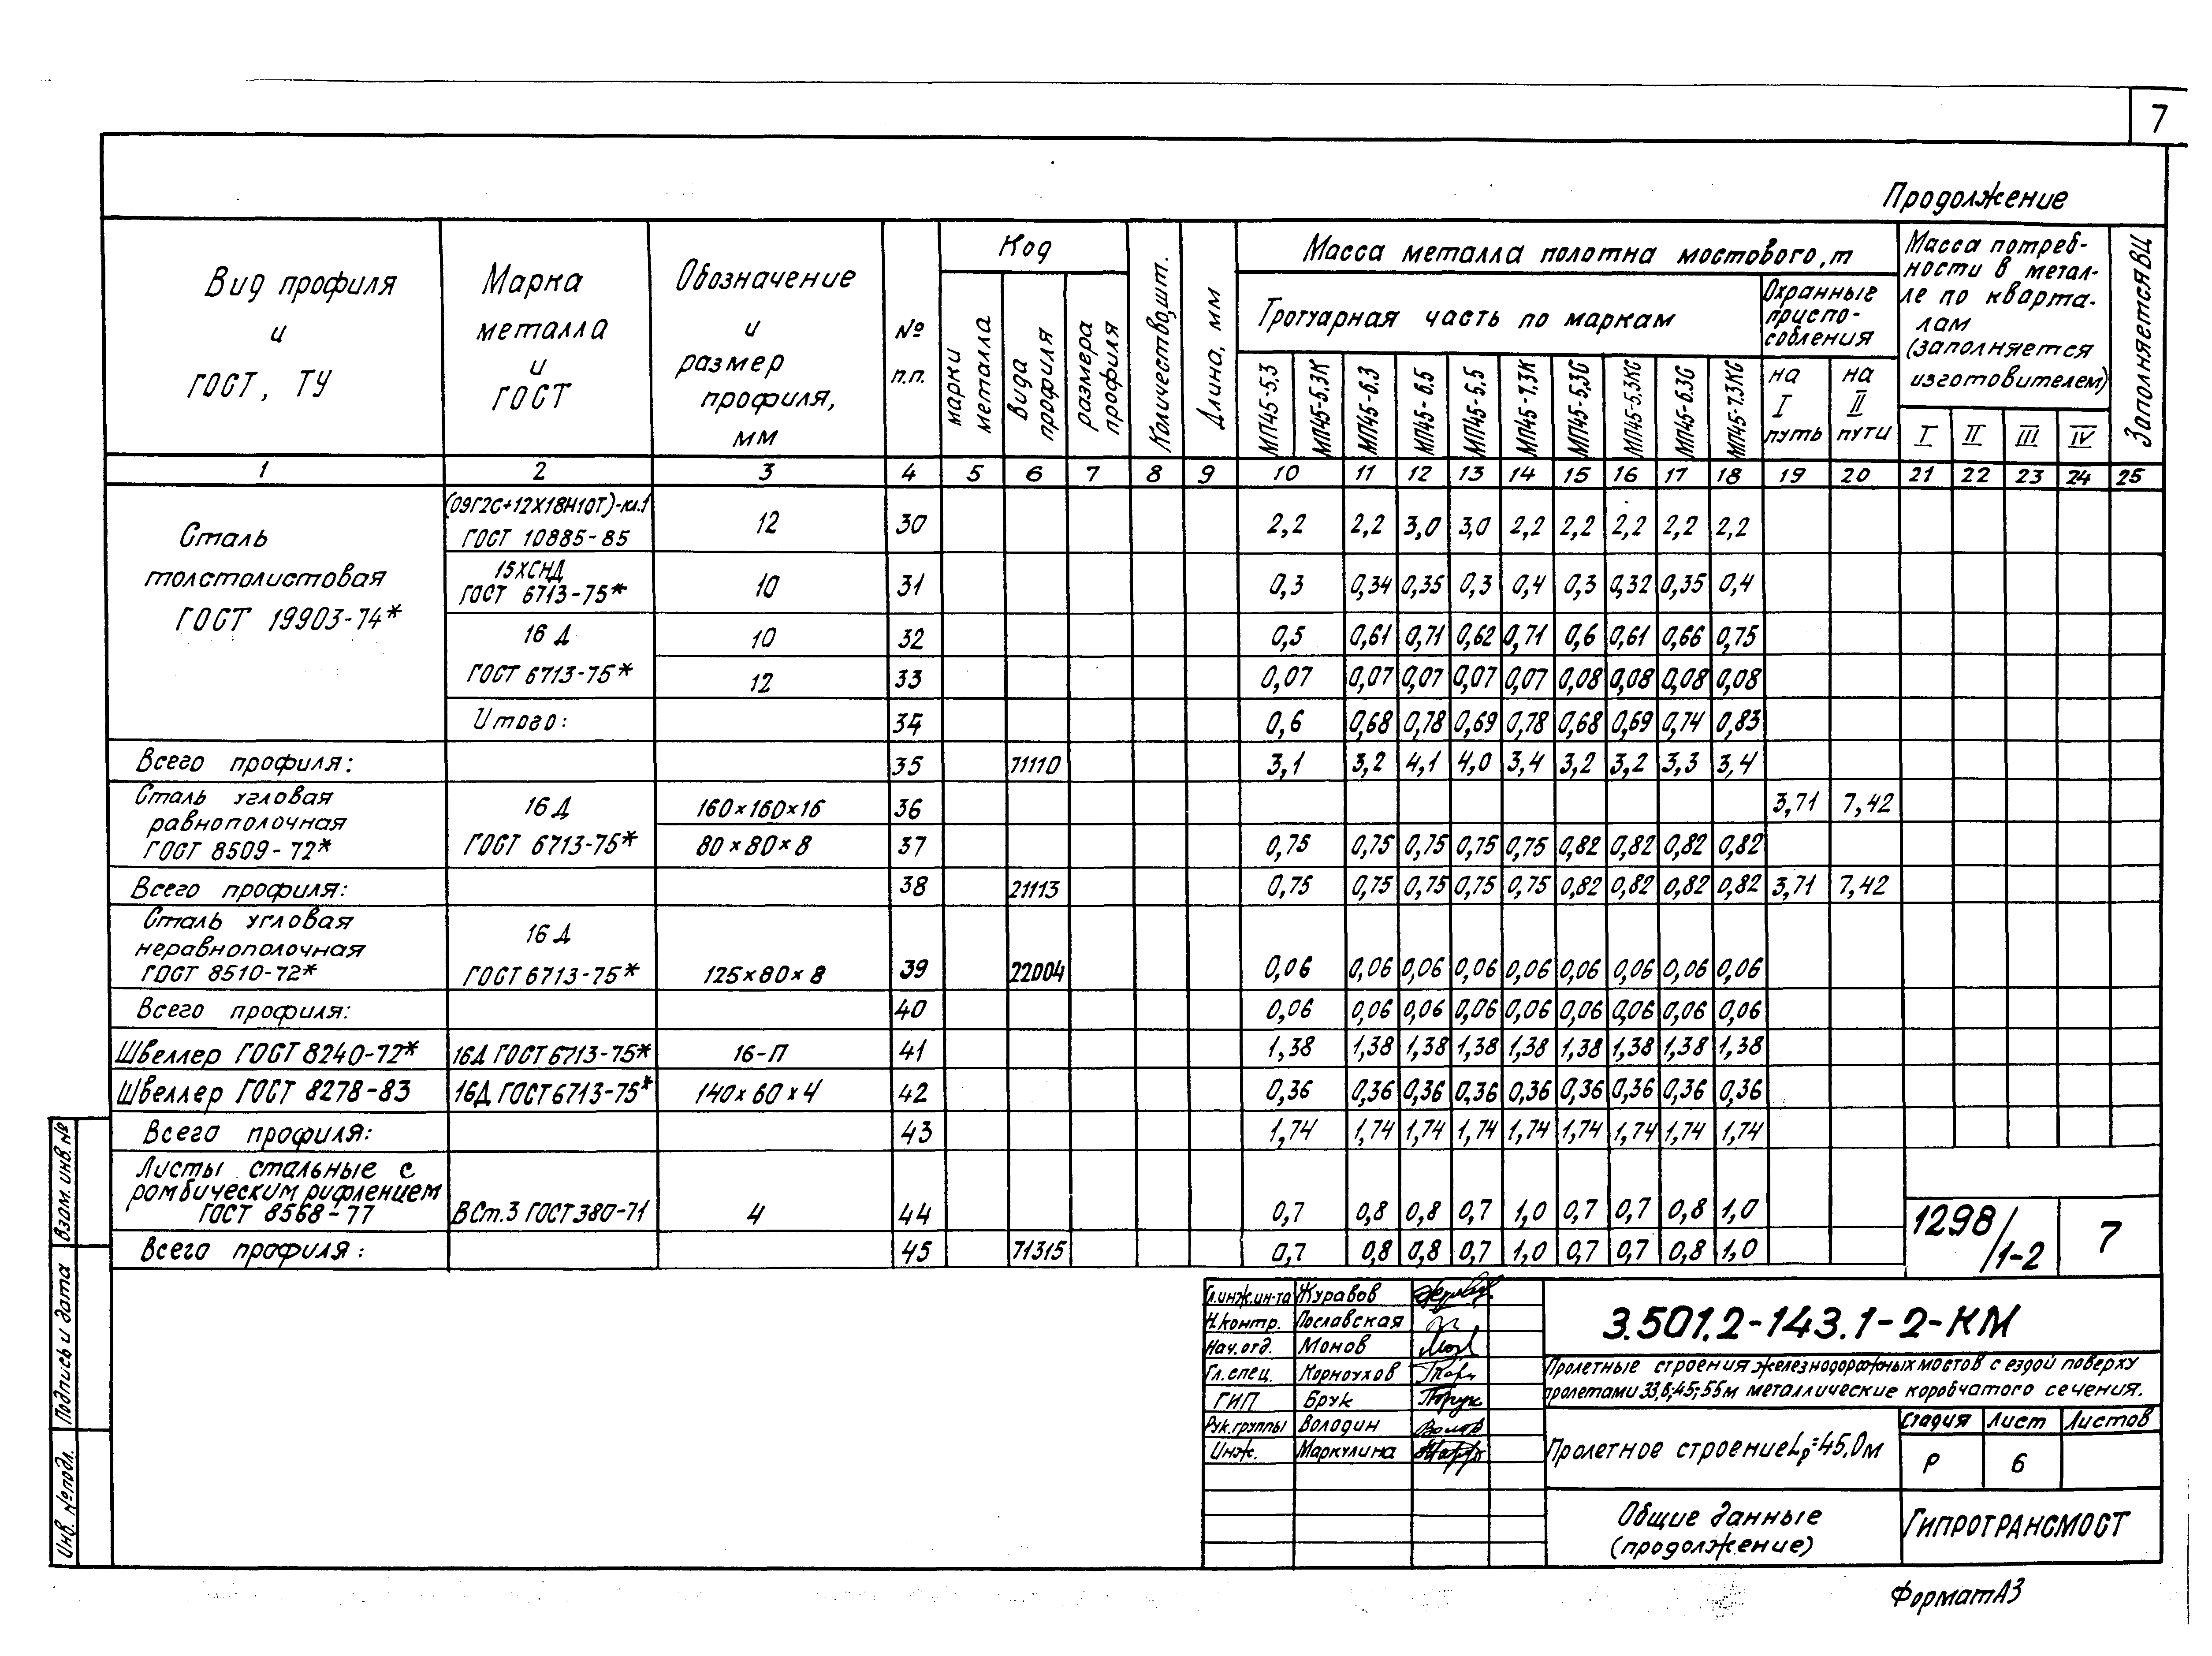 7
Продолжение
Вид профиля
и
ГОСТ, ТУ
Марка
металла
и
ГОСТ
Обозначение
и
размер
профиля,
мм
№
п.п.
Код
марки
металла
вида
профиля
размера
профиля
Количество, шт.
Длина, мм
Масса металла полотна мостового, т
Тротуарная часть по маркам
МП45-5,3
МП45-5,3К
МП45-6.3
МП45-6.5
МП45-5.5
МП45-7.3К
МП45-5,3С
МП45-5.3КС
МП45-6.3С
МП45-7.3КС
Охранные
приспо-
собления
на
I
путь
на
II
пути
Масса потреб-
ности в метал-
ле по кварта-
лам
(заполняется
изготовителем)
I II III IV
Заполняется ВЦ
1 2 3 4 5 6 7 8 9 10 11 12 13 14 15 16 17 18 19 20 21 22 23 24 25
Сталь
толстолистовая
ГОСТ 19903-74*
(09Г2С+12Х18Н10Т)-кл.1
ГОСТ 10885-85
12 30 2,2 2,2 3,0 3,0 2,2 2,2 2,2 2,2 2,2
15ХСНД
ГОСТ 6713-75*
10 31 0,3 0,34 0,35 0,3 0,4 0,3 0,32 0,35 0,4
16 Д
ГОСТ 6713-75*
10 32 0,5 0,61 0,71 0,62 0,71 0,6 0,61 0,66 0,75
12 33 0,07 0,07 0,07 0,07 0,07 0,08 0,08 0,08 0,08
Итого: 34 0,6 0,68 0,78 0,69 0,78 0,68 0,69 0,74 0,83
Всего профиля: 35 71110 3,1 3,2 4,1 4,0 3,4 3,2 3,2 3,3 3,4
Сталь угловая
равнополочная
ГОСТ 8509-72*
16 Д
ГОСТ 6713-75*
160×160×16 36 3,71 7,42
80×80×8 37 0,75 0,75 0,75 0,75 0,75 0,82 0,82 0,82 0,82
Всего профиля: 38 21113 0,75 0,75 0,75 0,75 0,75 0,82 0,82 0,82 0,82 3,71 7,42
Сталь угловая
неравнополочная
ГОСТ 8510-72*
16 Д
ГОСТ 6713-75*
125×80×8 39 22004 0,06 0,06 0,06 0,06 0,06 0,06 0,06 0,06 0,06
Всего профиля: 40 0,06 0,06 0,06 0,06 0,06 0,06 0,06 0,06 0,06
Швеллер ГОСТ 8240-72* 16Д ГОСТ 6713-75* 16-П 41 1,38 1,38 1,38 1,38 1,38 1,38 1,38 1,38 1,38
Швеллер ГОСТ 8278-83 16Д ГОСТ 6713-75* 140×60×4 42 0,36 0,36 0,36 0,36 0,36 0,36 0,36 0,36 0,36
Всего профиля: 43 1,74 1,74 1,74 1,74 1,74 1,74 1,74 1,74 1,74
Листы стальные с
ромбическим рифлением
ГОСТ 8568-77
ВСт.3 ГОСТ 380-71 4 44 0,7 0,8 0,8 0,7 1,0 0,7 0,7 0,8 1,0
Всего профиля: 45 71315 0,7 0,8 0,8 0,7 1,0 0,7 0,7 0,8 1,0
1298/1-2 7
Взам. инв. №
Подпись и дата
Инв. № подл.
Гл.инж.ин-та Журавов
Н.контр. Пославская
Нач.отд. Монов
Гл.спец. Корноухов
ГИП Брук
Рук.группы Володин
Инж. Маркулина
3.501.2-143.1-2-КМ
Пролетные строения железнодорожных мостов с ездой поверху
пролетами 33,6; 45; 55м металлические коробчатого сечения.
Пролетное строение Lр=45,0м
Стадия Лист Листов
Р 6
Общие данные
(продолжение)
ГИПРОТРАНСМОСТ
Формат А3